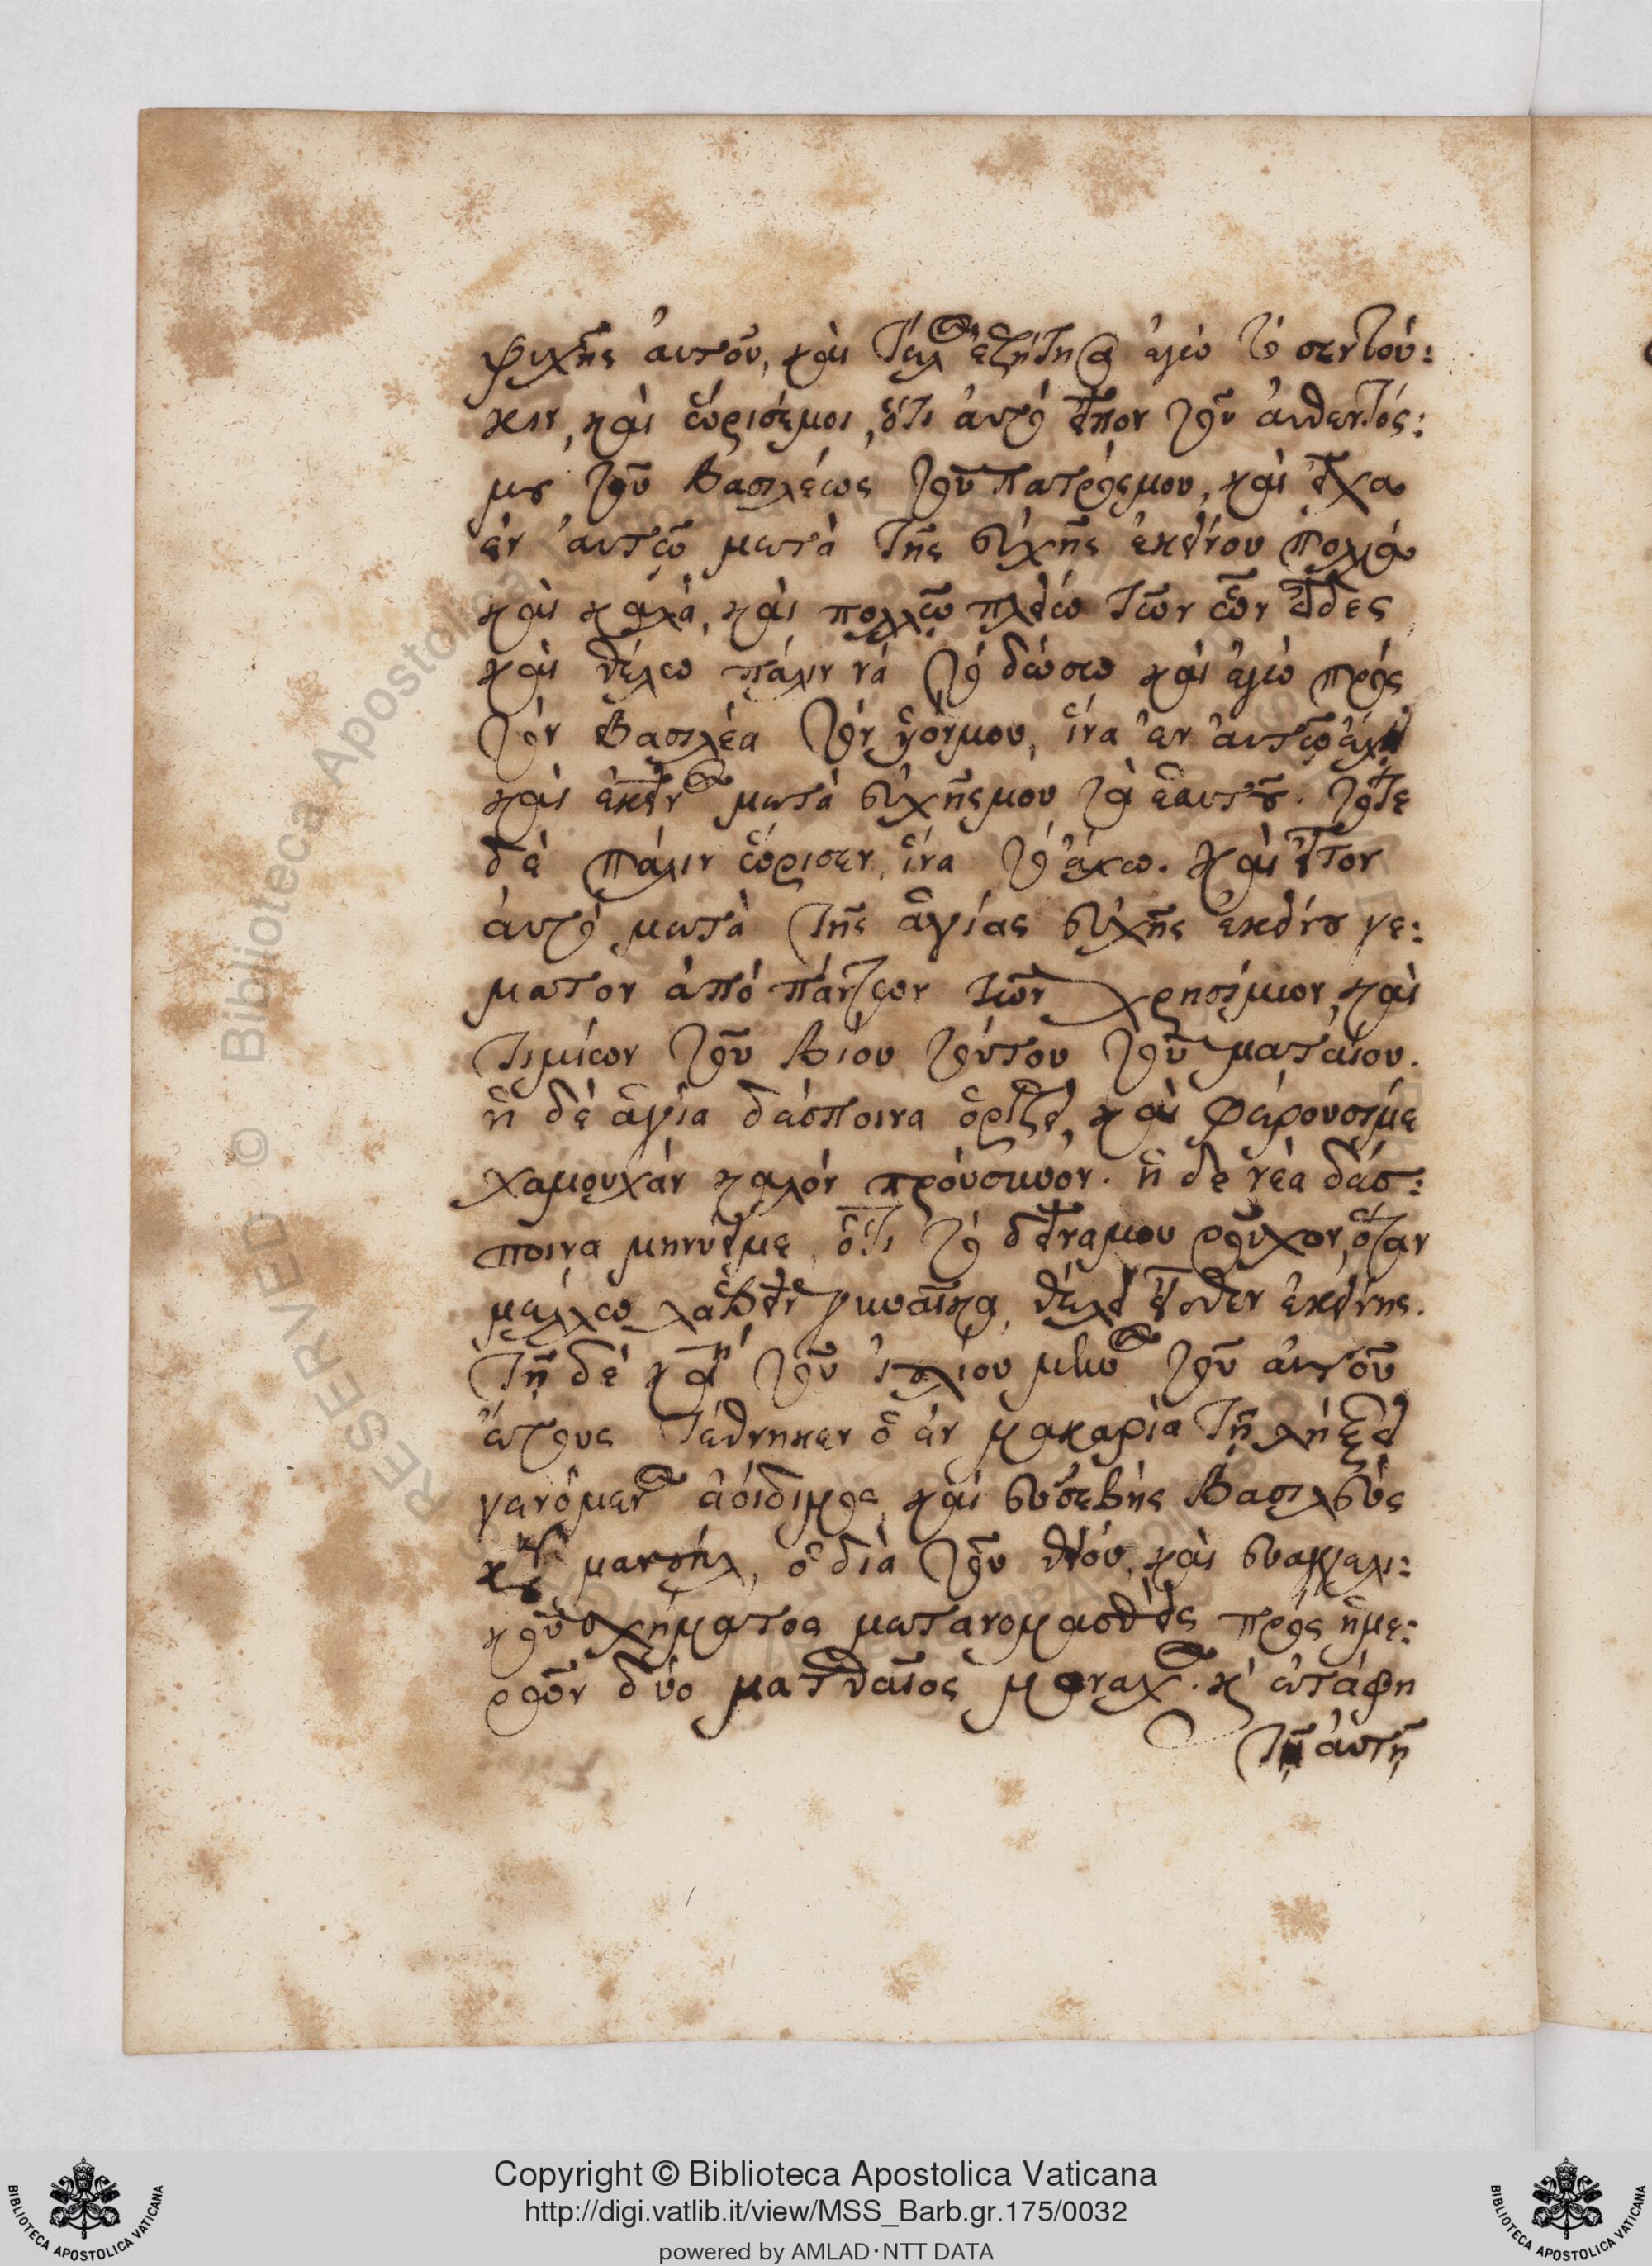 ψυχῆς αὐτοῦ, καὶ τέλος ἐζήτησα ἐγὼ τὸ σεντού:
κιν, καὶ ὥρισέμοι, ὅτι αὐτὸ εἶπον τοῦ αὐθεντός:
μου τοῦ Βασιλέως τοῦ πατρόςμου, καὶ εἶχα
ἐν αὐτῷ μετὰ τῆς εὐχῆς ἐκείνου πολλὰ
καὶ καλὰ, καὶ πολλῷ πλείω τῶν ὧν εἶδες
καὶ θέλω πάλιν νὰ τὸ δώσω καὶ ἐγὼ πρὸς
τὸν Βασιλέα τὸν ὑιόνμου, ἵνα ἐν αὐτῷ ἔχῃ
καὶ ἐκεῖνος μετὰ εὐχῆςμου τὰ ἑαυτοῦ. τότε
δὲ πάλιν ὥρισεν, ἵνα τὸ ἔχω. καὶ ἦτον
αὐτὸ μετὰ τῆς ἁγίας εὐχῆς ἐκείνου γε:
ματον ἀπὸ πάντων τῶν χρησίμων, καὶ
τιμίων τοῦ βίου τούτου τοῦ ματαίου.
ἡ δὲ ἁγία δέσποινα ὁρίζει, καὶ φέρουσίμε
χαμουχὰν καλὸν πρόυσινον. ἡ δὲ νέα δέσ:
ποινα μηνύειμε, ὅτι τὸ δεῖναμου ροῦχον, ὅταν
μέλλω λαβεῖν γυναῖκα, θέλει εἶσθεν ἐκείνης.
Τῇ δὲ καῃ τοῦ ἰουλίου μηνὸς τοῦ αὐτοῦ
ἔτους τέθνηκεν ὁ ἐν μακαρία τῇ λήξει
γενόμενος ἀοίδιμος καὶ εὐσεβὴς Βασιλεὺς
κὺρ μανουὴλ, ὁ διὰ τοῦ θείου, καὶ εὐαγγελι:
κοῦ σχήματος μετανομασθεὶς πρὸς ἡμε:
ρῶν δύο ματθαῖος μοναχός. κὶ ἐτάφη
τῇ αὐτῇ
Copyright © Biblioteca Apostolica Vaticana
http://digi.vatlib.it/view/MSS_Barb.gr.175/0032
powered by AMLAD·NTT DATA
BIBLIOTECA APOSTOLICA VATICANA
BIBLIOTECA APOSTOLICA VATICANA